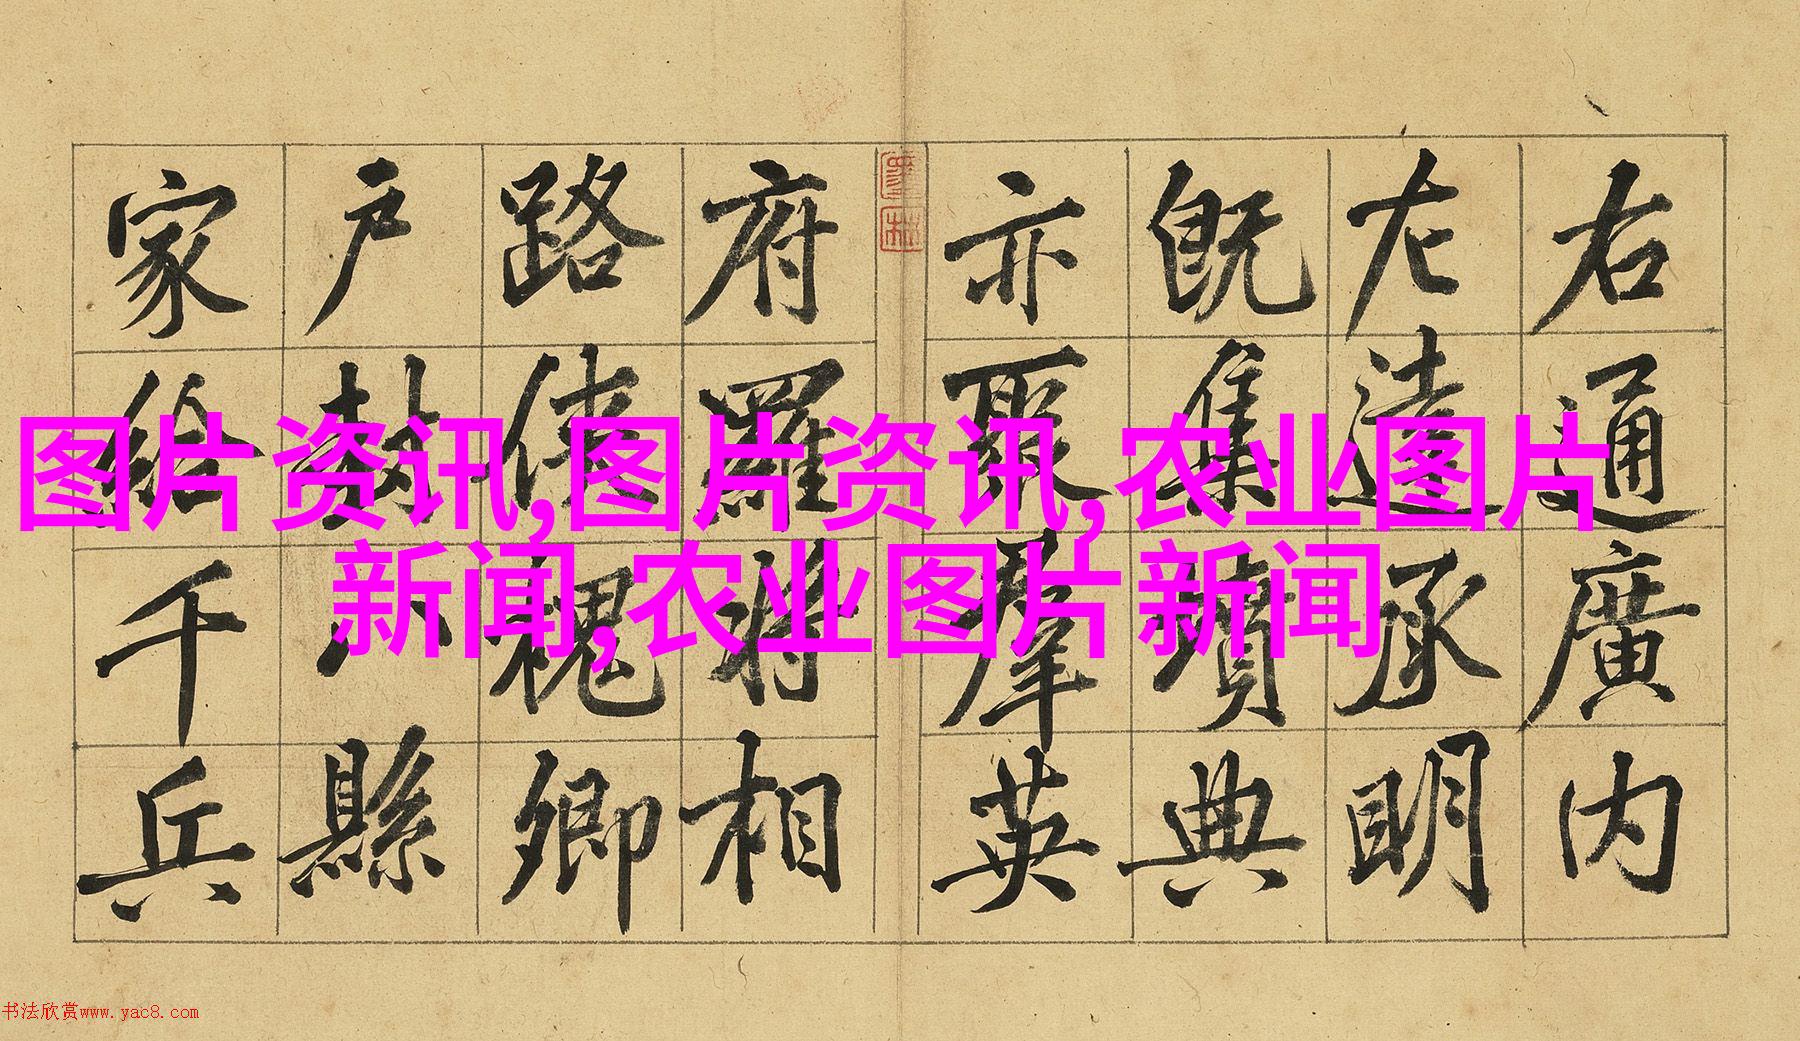 右通廣内
左達承明
既集墳典
亦聚羣英
府羅將相
路俠槐卿
户封八縣
家給千兵
图片资讯,图片资讯,农业图片
新闻,农业图片新闻
书法欣赏www.yac8.com